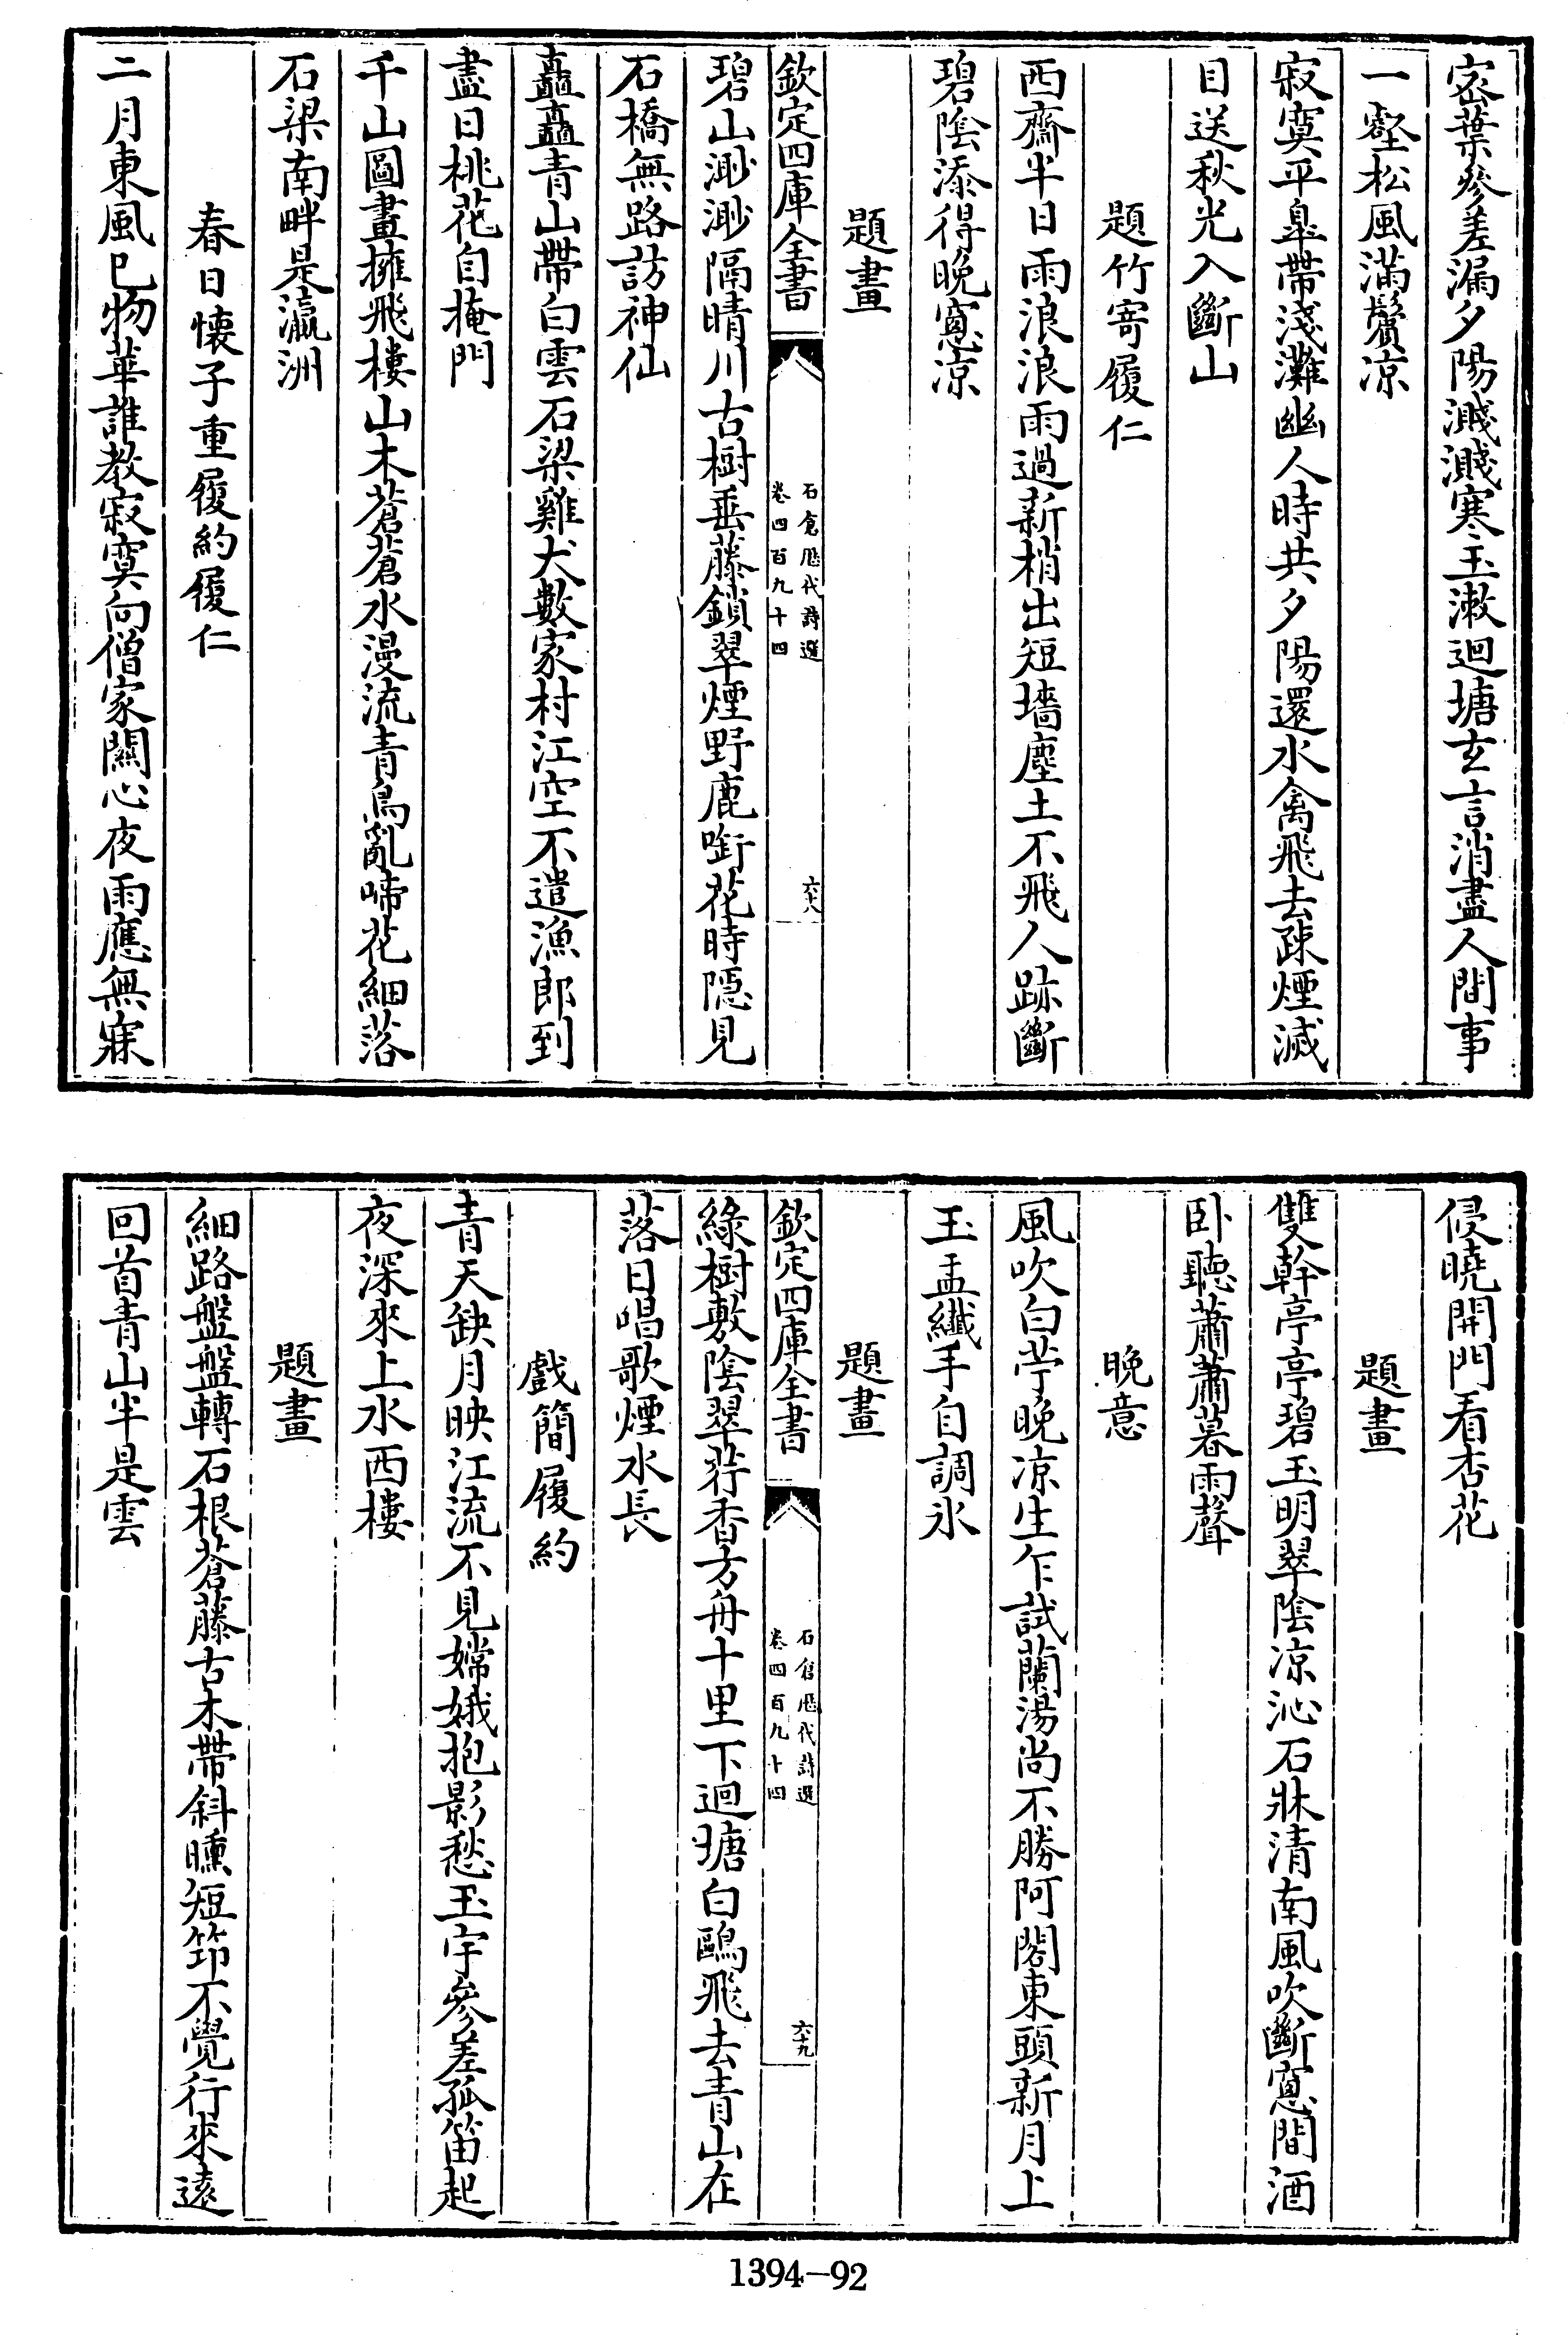 密葉參差漏夕陽濺濺寒玉漱迴塘玄言消盡人間事
一壑松風滿鬢凉
寂寞平臯帶淺灘幽人時共夕陽還水禽飛去疎煙滅
目送秋光入斷山
題竹寄履仁
西齋半日雨浪浪雨過新梢出短墻塵土不飛人跡斷
碧陰添得晚窻凉
題畫
欽定四庫全書
石倉歷代詩選
卷四百九十四
六十八
碧山渺渺隔晴川古樹垂藤鎖翠煙野鹿啣花時隱見
石橋無路訪神仙
矗矗青山帶白雲石梁雞犬數家村江空不遣漁郎到
盡日桃花自掩門
千山圖畫擁飛樓山木蒼蒼水漫流青鳥亂啼花細落
石梁南畔是瀛洲
春日懷子重履約履仁
二月東風已物華誰教寂寞向僧家關心夜雨應無寐
侵曉開門看杏花
題畫
雙幹亭亭碧玉明翠陰凉沁石牀清南風吹斷窻間酒
卧聽蕭蕭暮雨聲
晚意
風吹白苧晚凉生乍試蘭湯尚不勝阿閣東頭新月上
玉盂纖手自調氷
題畫
欽定四庫全書
石倉歷代詩選
卷四百九十四
六十九
綠樹敷陰翠荇香方舟十里下迴塘白鷗飛去青山在
落日唱歌煙水長
戲簡履約
青天缺月映江流不見嫦娥抱影愁玉宇參差孤笛起
夜深來上水西樓
題畫
細路盤盤轉石根蒼藤古木帶斜曛短笻不覺行來遠
回首青山半是雲
1394—92